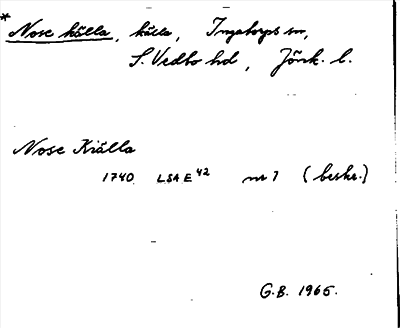 * Nose källa, källa, Ingatorps sn,
S. Vedbo hd, Jönk. l.
Nose Kiälla
1740 LSA E42 nr 7 (beskr.)
G.B. 1965.